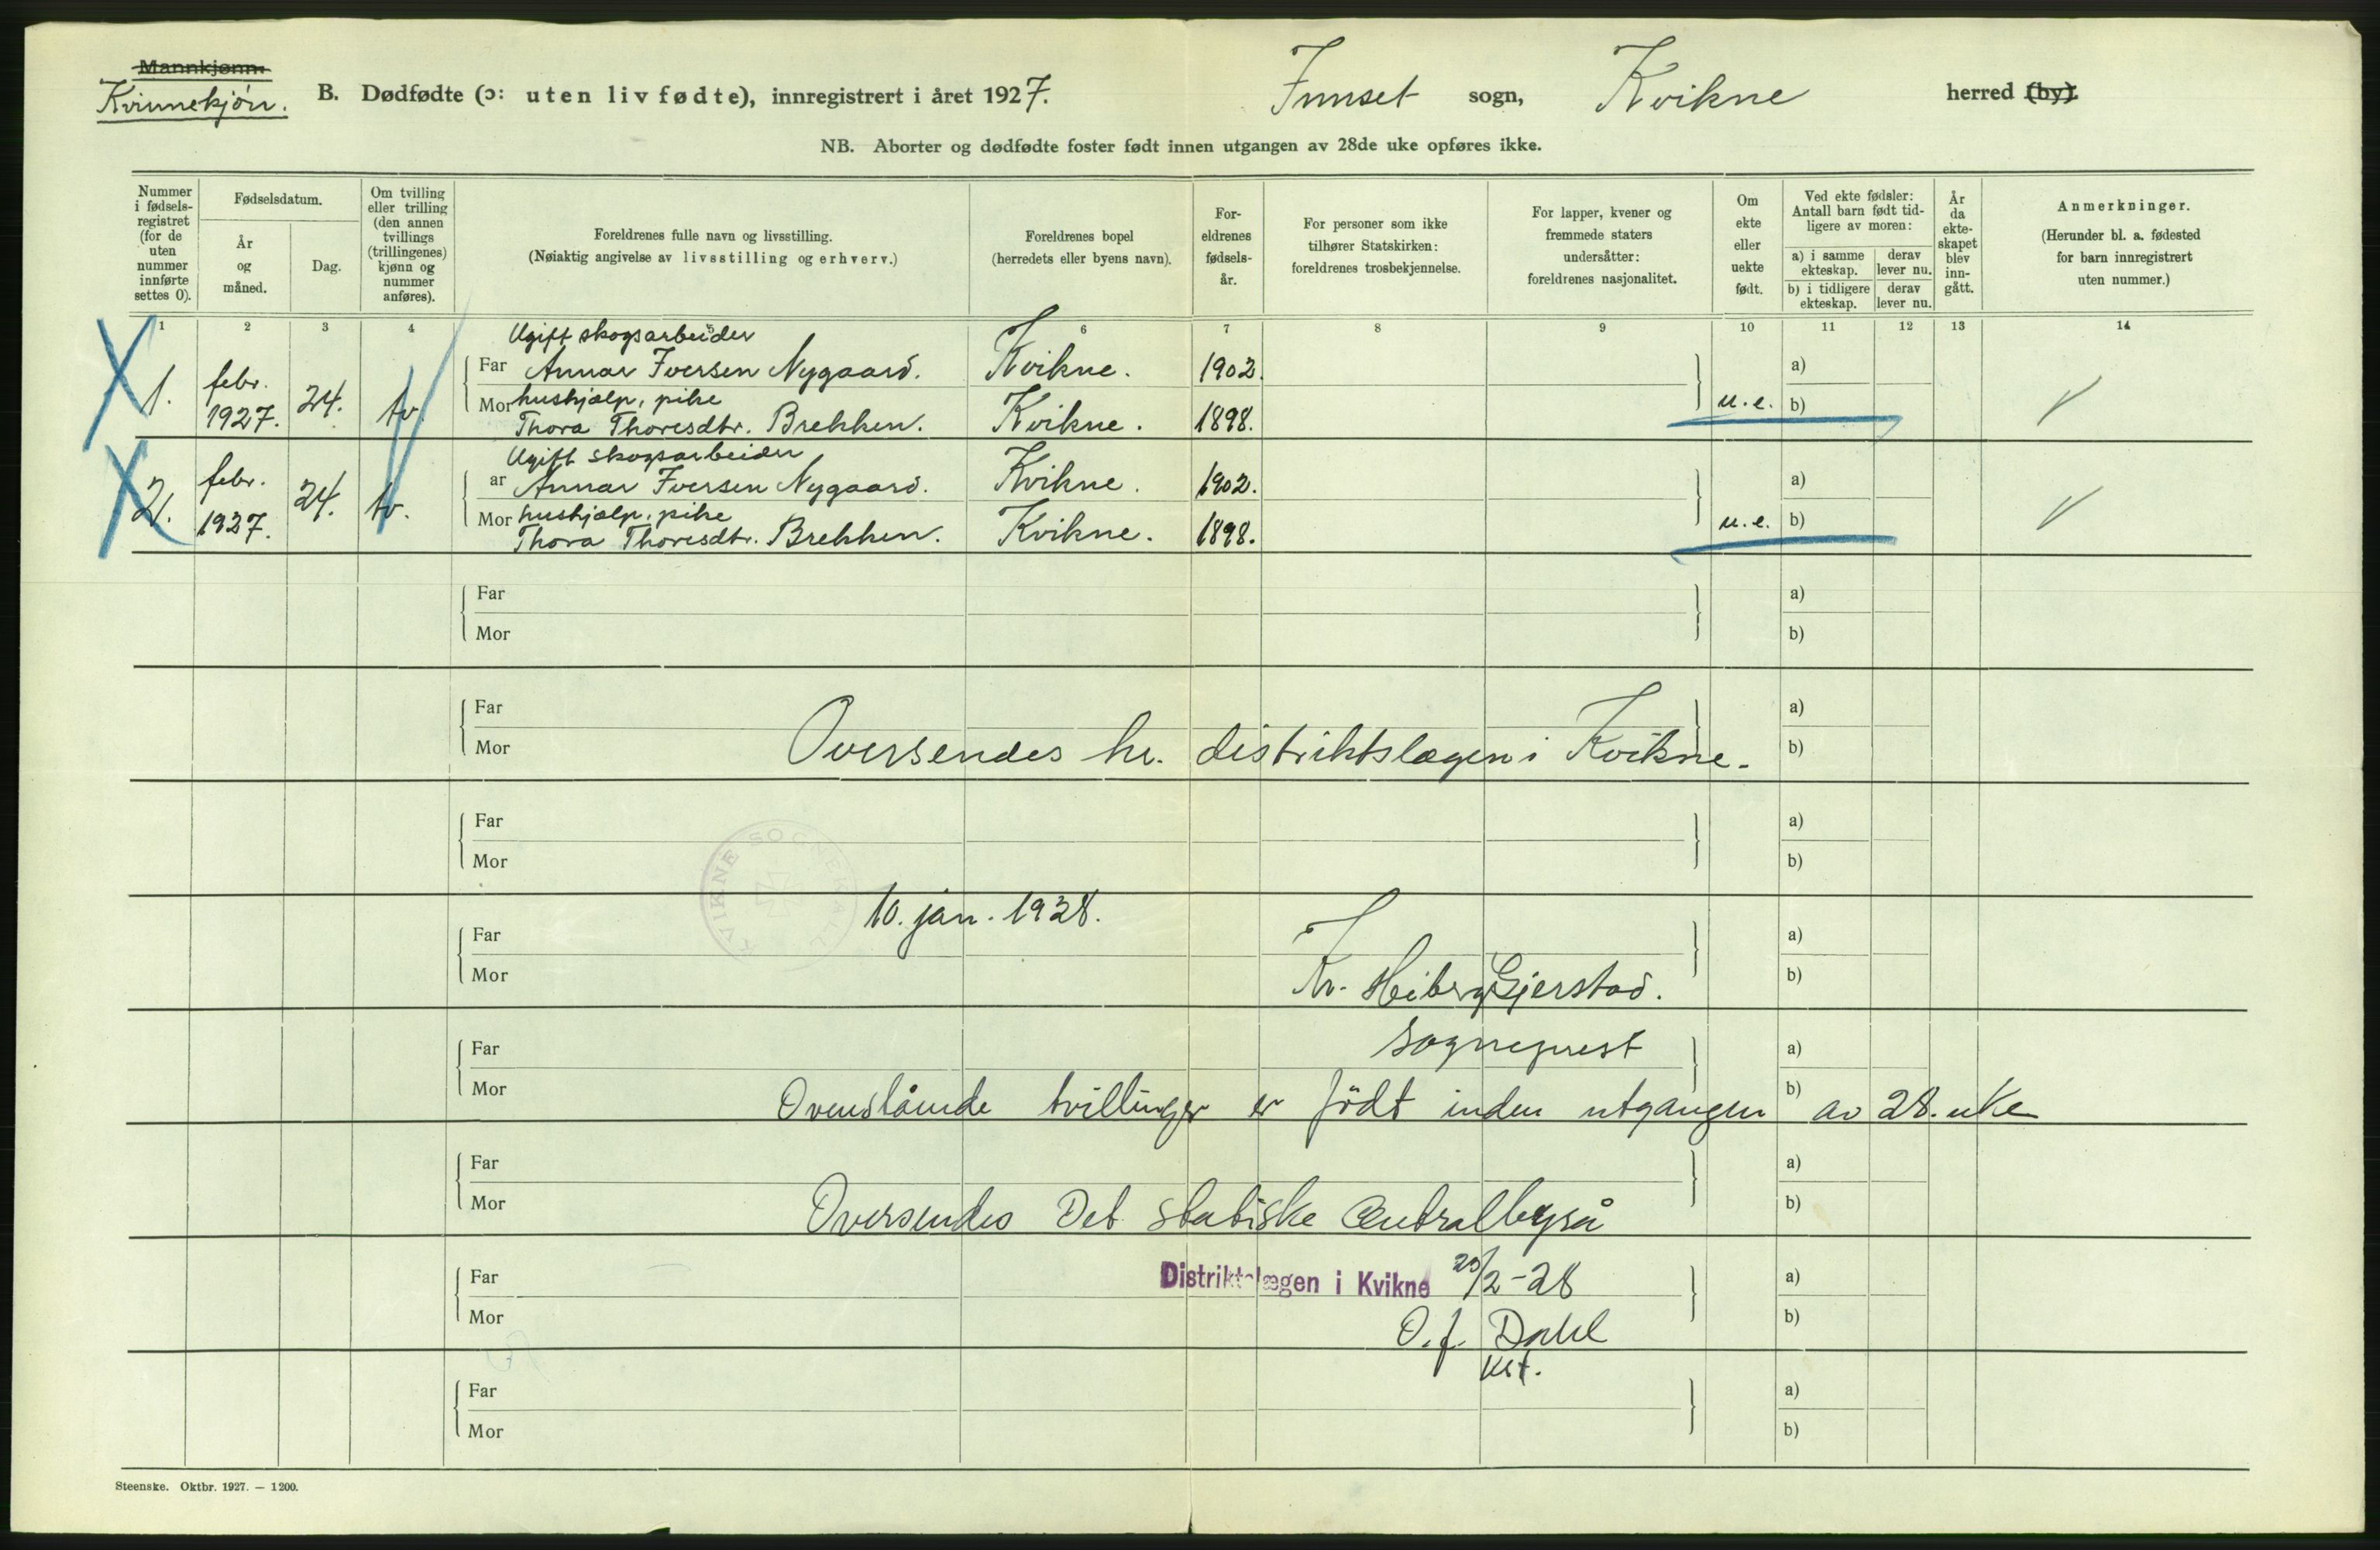 Mannkjønn.
Kvinnekjön.
B. Dødfødte (ɔ: uten liv fødte), innregistrert i året 1927.
Innset sogn, Kvikne herred (by).
NB. Aborter og dødfødte foster født innen utgangen av 28de uke opføres ikke.
Nummer i fødsels-registret (for de uten nummer innførte settes 0).
Fødselsdatum.
År og måned.
Dag.
Om tvilling eller trilling (den annen tvillings (trillingenes) kjønn og nummer anføres).
Foreldrenes fulle navn og livsstilling.
(Nøiaktig angivelse av livsstilling og erhverv.)
Foreldrenes bopel
(herredets eller byens navn).
For-eldrenes fødsels-år.
For personer som ikke tilhører Statskirken: foreldrenes trosbekjennelse.
For lapper, kvener og fremmede staters undersåtter: foreldrenes nasjonalitet.
Om ekte eller uekte født.
Ved ekte fødsler: Antall barn født tid-ligere av moren:
a) i samme ekteskap.
derav lever nu.
b) i tidligere ekteskap.
derav lever nu.
År da ekte-skapet blev inn-gått.
Anmerkninger.
(Herunder bl. a. fødested for barn innregistrert uten nummer.)
1 2 3 4 5 6 7 8 9 10 11 12 13 14
Ugift skogsarbeider
1. febr. 1927. 24. tv. Far Annar Iversen Nygaard. Kvikne. 1902. a)
Mor hushjælp, pike
Thora Thoresdtr. Brekken. Kvikne. 1898. u.e. b)
Ugift skogsarbeider
2. febr. 1927. 24. tv. ar Annar Iversen Nygaard. Kvikne. 1902. a)
Mor hushjælp, pike
Thora Thoresdtr. Brekken. Kvikne. 1898. u.e. b)
Far a)
Mor b)
Far a)
Mor Oversendes hr. distriktslægen i Kvikne. b)
Far a)
Mor b)
KVIKNE SOGNEKALL
10. jan. 1928.
Far a)
Mor Kr. Heiberg Gjerstad. b)
Far sogneprest a)
Mor b)
Ovenstående tvillinger er födt inden utgangen av 28. uke
Far a)
Mor b)
Oversendes Det statiske Centralbyrå
Far Distriktslægen i Kvikne 20/2-28 a)
Mor O. f. Dahl b)
kst.
Far a)
Mor b)
Steenske. Oktbr. 1927. — 1200.